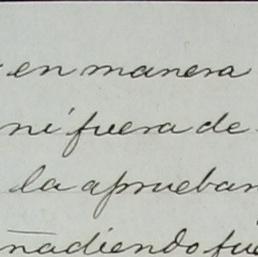 en manera
ni fuera de
la aprueban
ñadiendo fue